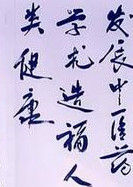 发展中医药
学札造福人
类健康